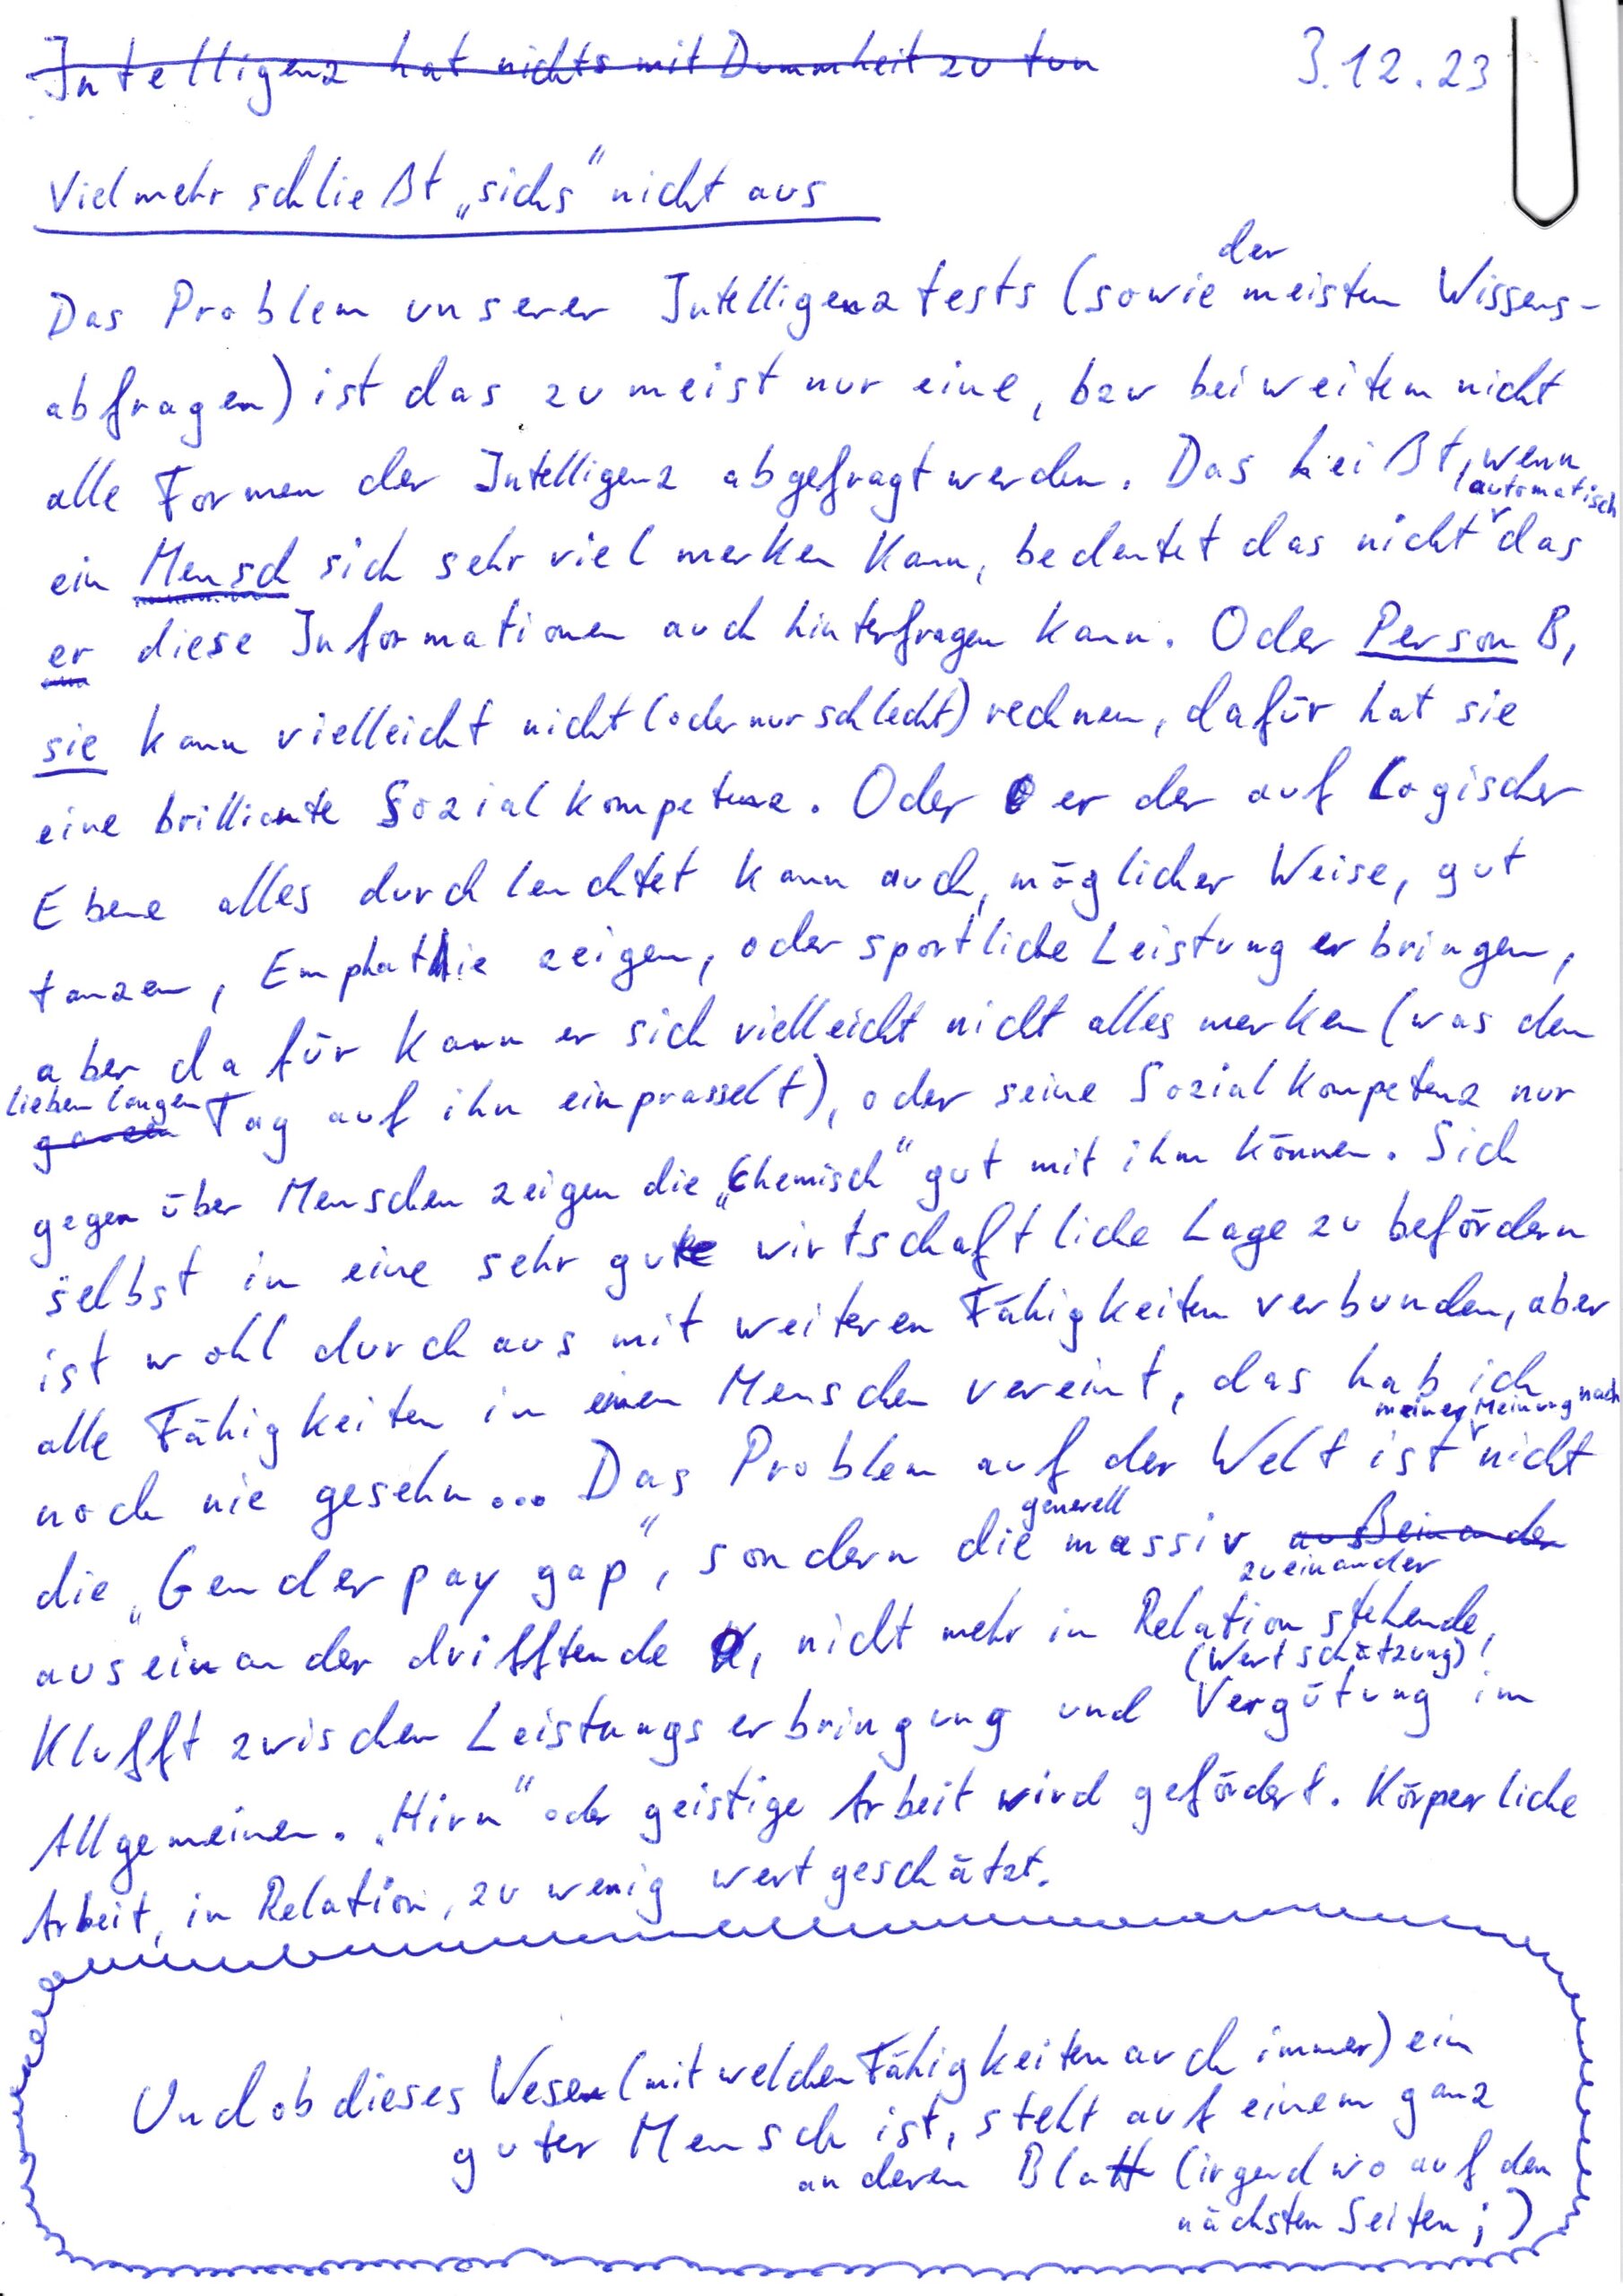 Intelligenz hat nichts mit Dummheit zu tun
3.12.23
Vielmehr schließt „sichs“ nicht aus
der
Das Problem unserer Intelligenztests (sowie meisten Wissens-
abfragen) ist das zumeist nur eine, bzw bei weitem nicht
alle Formen der Intelligenz abgefragt werden. Das heißt, wenn
automatisch
ein Mensch sich sehr viel merken kann, bedeutet das nicht das
er diese Informationen auch hinterfragen kann. Oder Person B,
sie kann vielleicht nicht (oder nur schlecht) rechnen, dafür hat sie
eine brilliante Sozialkompetenz. Oder er der auf Logischer
Ebene alles durchleuchtet kann auch, möglicher Weise, gut
tanzen, Emphathie zeigen, oder sportliche Leistung erbringen,
aber dafür kann er sich vielleicht nicht alles merken (was den
lieben langen
ganzen Tag auf ihn einprasselt), oder seine Sozialkompetenz nur
gegenüber Menschen zeigen die „Chemisch“ gut mit ihm können. Sich
selbst in eine sehr gute wirtschaftliche Lage zu befördern
ist wohl durchaus mit weiteren Fähigkeiten verbunden, aber
alle Fähigkeiten in einen Menschen vereint, das hab ich
meiner Meinung nach
noch nie gesehn... Das Problem auf der Welt ist nicht
generell
die „Gender pay gap“, sondern die massiv außeinander
zueinander
auseinander drifftende, nicht mehr in Relation stehende,
(Wertschätzung)
Klufft zwischen Leistungserbringung und Vergütung im
Allgemeinen. „Hirn“ oder geistige Arbeit wird gefördert. Körperliche
Arbeit, in Relation, zu wenig wertgeschätzt.
Und ob dieses Wesen (mit welchen Fähigkeiten auch immer) ein
guter Mensch ist, steht auf einem ganz
anderen Blatt (irgendwo auf den
nächsten Seiten ;)